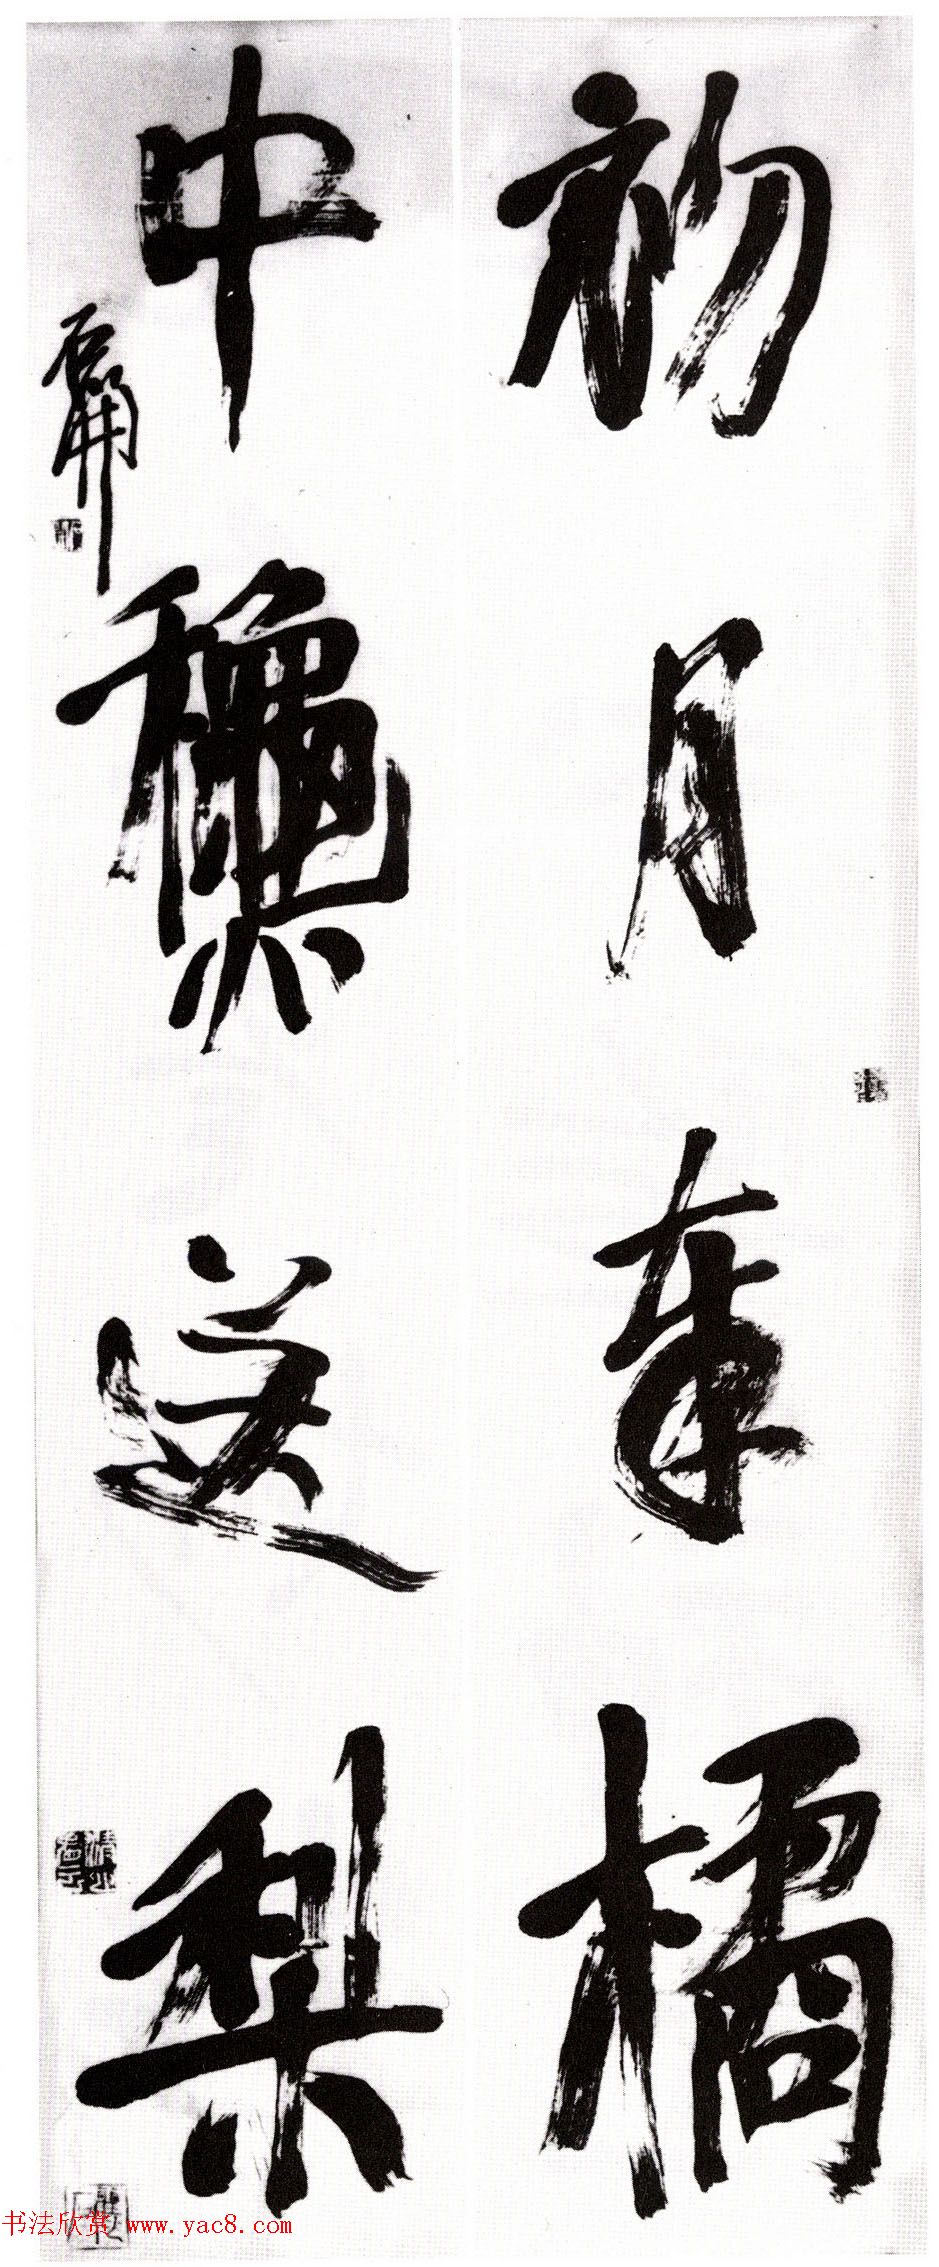 初月奉橘
中龝送梨
石庸
书法欣赏 www.yac8.com